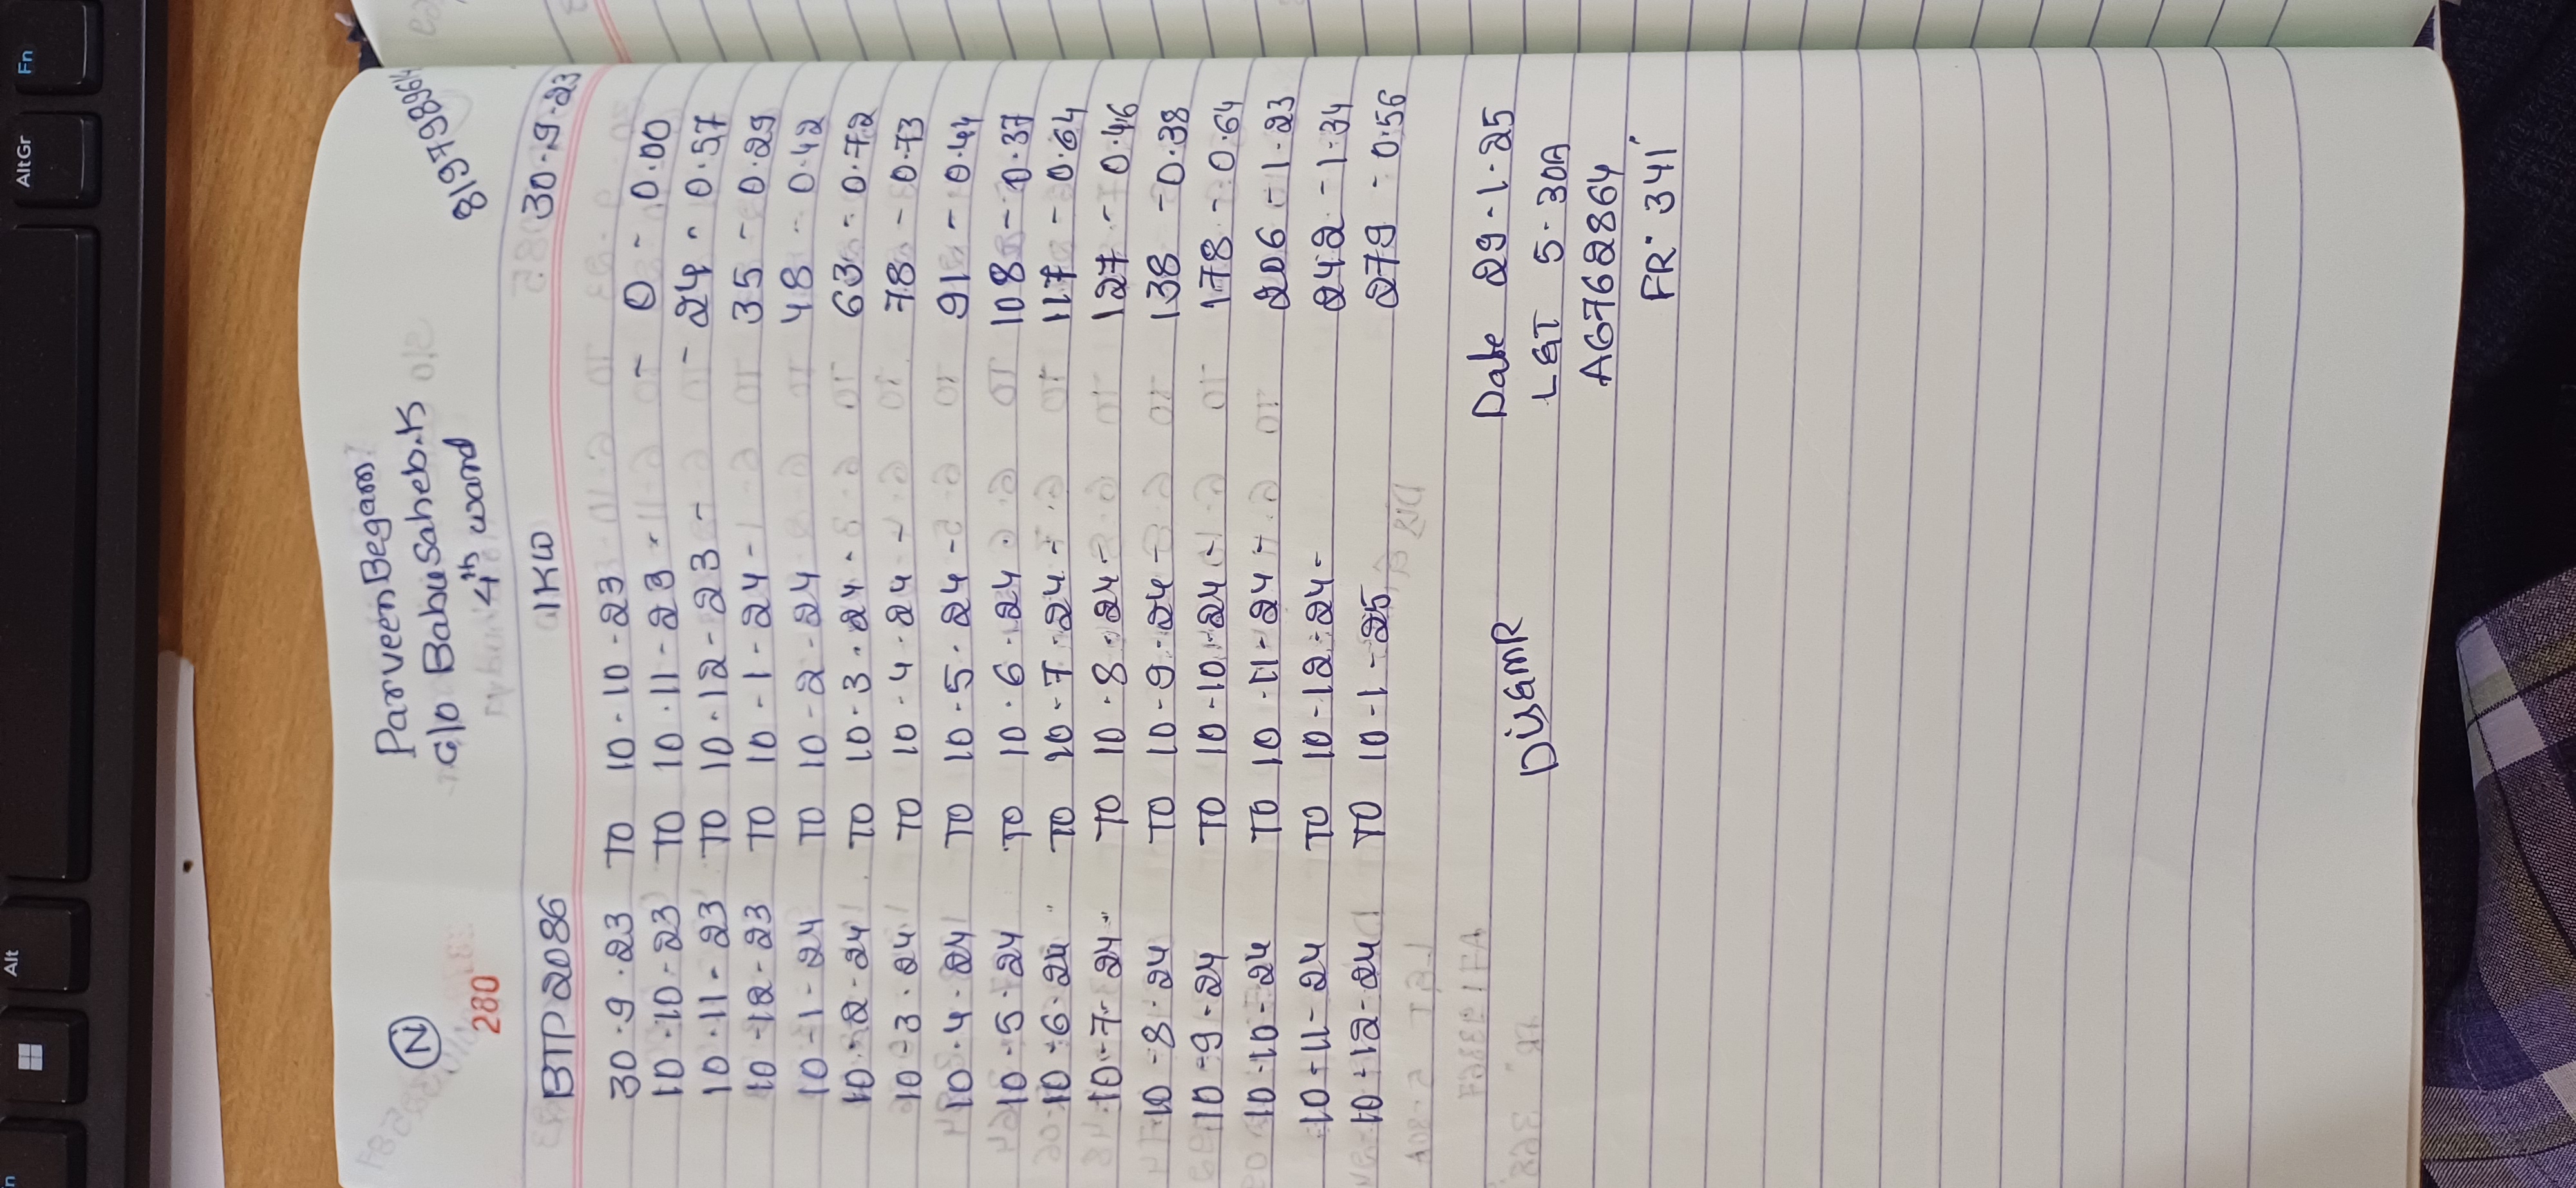 N
280
Parveen Begam
C/O BabuSaheb.K
4th ward
8197989614
BTP2086 1KW 30.9.23
30.9.23 TO 10-10-23
10-10-23 TO 10.11-23 - - 0 - 0.00
10.11-23 TO 10-12-23 - - 24 - 0.57
10-12-23 TO 10-1-24 - 35 - 0.29
10-1-24 TO 10-2-24 48 - 0.42
10-2-24 TO 10-3.24 - 63 - 0.72
10-3.24 TO 10-4.24 - 78 - 0.73
10.4.24 TO 10-5.24 - 91 - 0.44
10.5.24 TO 10.6.24 - 108 - 0.37
10-6.24 TO 10-7.24 - 117 - 0.64
10-7-24 TO 10-8.24 - 127 - 0.46
10-8-24 TO 10-9.24 - 138 - 0.38
10-9-24 TO 10-10-24 - 178 - 0.64
10-10-24 TO 10-11-24 - 206 - 1.23
10-11-24 TO 10-12-24 - 242 - 1.34
10-12-24 TO 10-1-25 279 - 0.56
Date 29-1-25
DisGMR L&T 5-30A
AG762864
FR: 341
Fn
AltGr
Alt